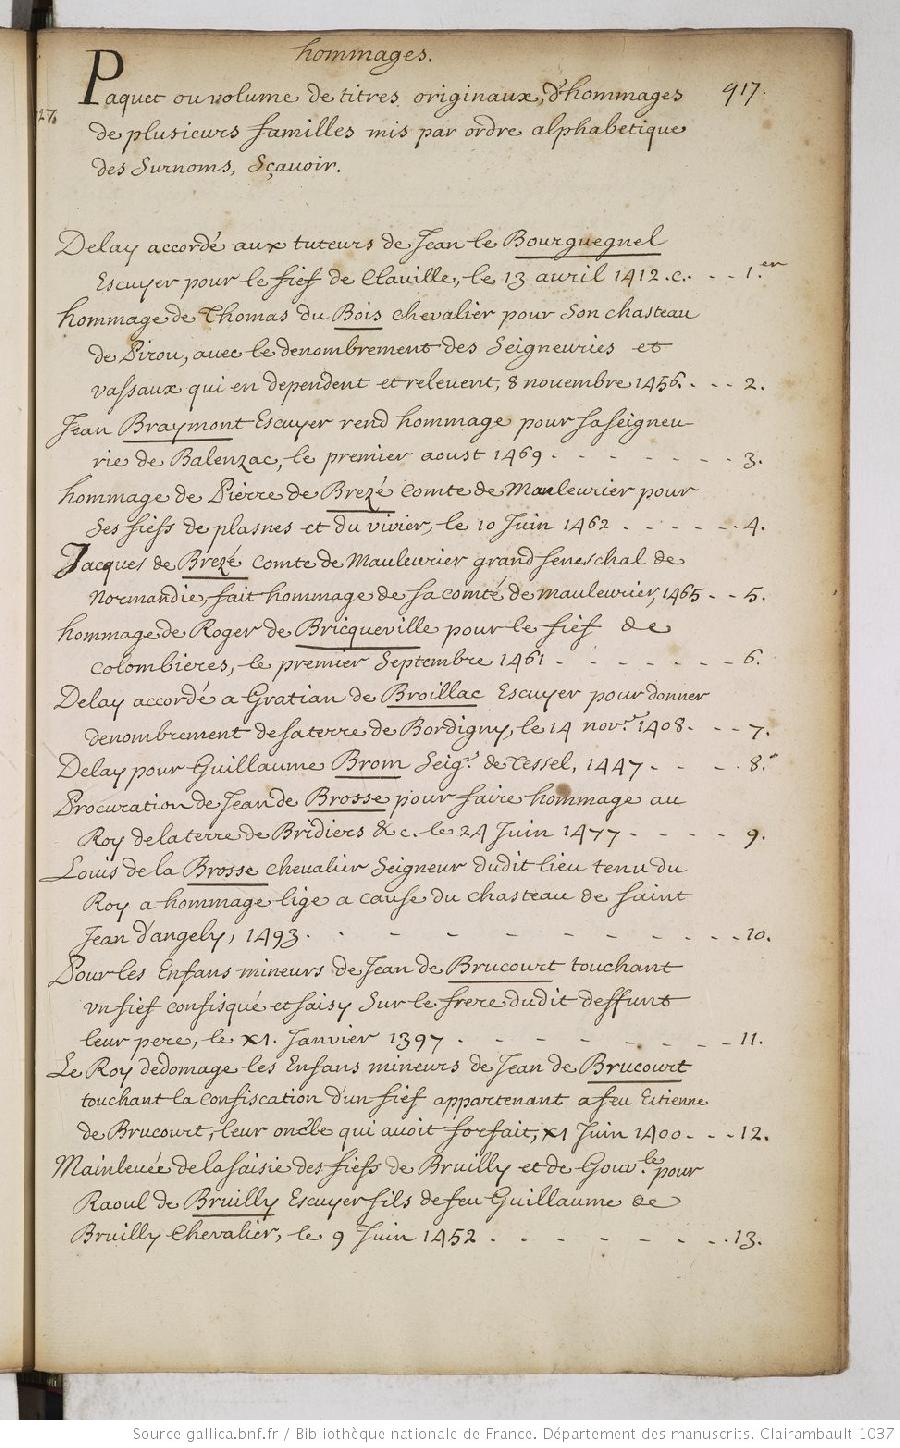 hommages.
917.
Paquet ou volume de titres originaux, d'hommages
de plusieurs familles mis par ordre alphabetique
des Surnoms, Sçavoir.
Delay accordé aux tuteurs de Jean le Bourguegnel
Escuyer pour le fief de Claville, le 13 avril 1412. c. - - 1.er
hommage de Thomas du Bois chevalier pour son chasteau
de Pirou, avec le denombrement des Seigneuries et
vassaux qui en dependent et relevent, 8 novembre 1456. - - - 2.
Jean Braymont Escuyer rend hommage pour sa seigneu-
rie de Balenzac, le premier aoust 1469 - - - - - - - 3.
hommage de Pierre de Brezé Comte de Maulevrier pour
ses fiefs de plasnes et du vivier, le 10 Juin 1462 - - - - - 4.
Jacques de Brezé Comte de Maulevrier grand seneschal de
Normandie, fait hommage de sa comté de maulevrier, 1465 - - 5.
hommage de Roger de Bricqueville pour le fief de
Colombieres, le premier Septembre 1461 - - - - - - 6.
Delay accordé a Gratian de Broillac Escuyer pour donner
denombrement de sa terre de Bordigny, le 14 nov.re 1408. - - 7.
Delay pour Guillaume Brom Seig.r de Tessel, 1447 - - - 8.
Procuration de Jean de Brosse pour faire hommage au
Roy de la terre de Bridiers &c. le 24 Juin 1477 - - - - 9.
Louis de la Brosse chevalier Seigneur dudit lieu tenu du
Roy a hommage lige a cause du chasteau de saint
Jean d'angely, 1493. - - - - - - - - - - 10.
Pour les Enfans mineurs de Jean de Brucourt touchant
un fief confisqué et saisy sur le frere dudit deffunt
leur pere, le x1. Janvier 1397 - - - - - - - - 11.
Le Roy dedomage les Enfans mineurs de Jean de Brucourt
touchant la confiscation d'un fief appartenant a feu Estienne
de Brucourt, leur oncle qui avoit forfait, x1 Juin 1400 - - - 12.
Mainlevée de la saisie des fiefs de Bruilly et de Gouv.le pour
Raoul de Bruilly Escuyer fils de feu Guillaume de
Bruilly Chevalier, le 9 Juin 1452 - - - - - - - 13.
Source gallica.bnf.fr / Bibliothèque nationale de France. Département des manuscrits. Clairambault 1037